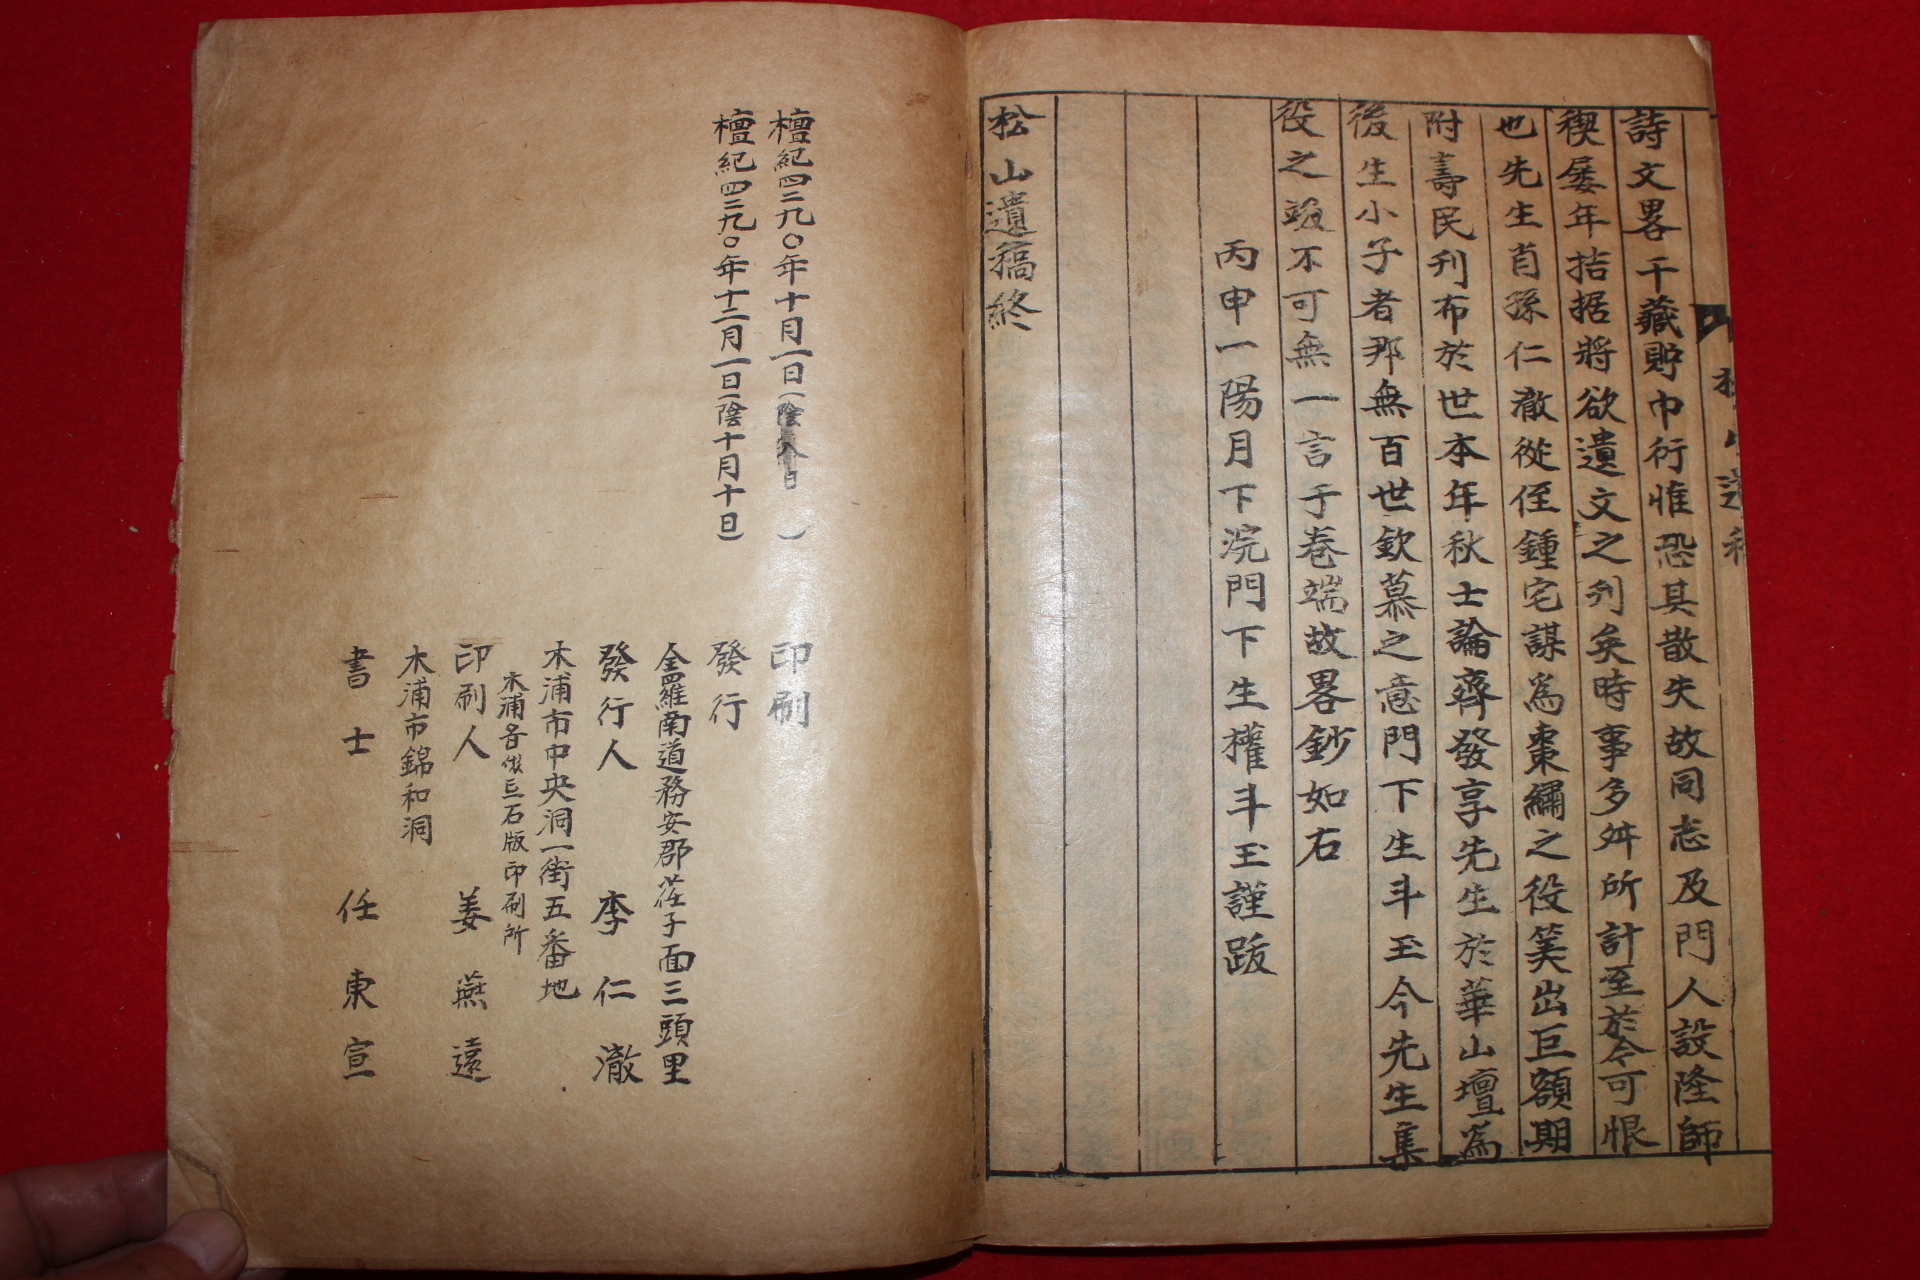 松山遺稿
詩文畧干藏貯巾衍惟恐其散失故同志及門人設隆師
稧屡年拮据將欲遺文之刊矣時事多舛所計至於今可恨
也先生肖孫仁澈從侄鍾宅謀爲棗繡之役筭出巨額期
附壽民刊布於世本年秋士論齊發享先生於華山壇爲
後生小子者那無百世欽慕之意門下生斗玉今先生集
役之竣不可無一言于卷端故畧鈔如右
丙申一陽月下浣門下生權斗玉謹跋
松山遺稿終
檀紀四二九〇年十月一日(陰 八日) 印刷
檀紀四二九〇年十二月一日(陰十月十日) 發行
全羅南道務安郡荏子面三頭里
發行人 李仁澈
木浦市中央洞一街五番地
木浦 石版印刷所
印刷人 姜燕遠
木浦市錦和洞
書士 任東宣